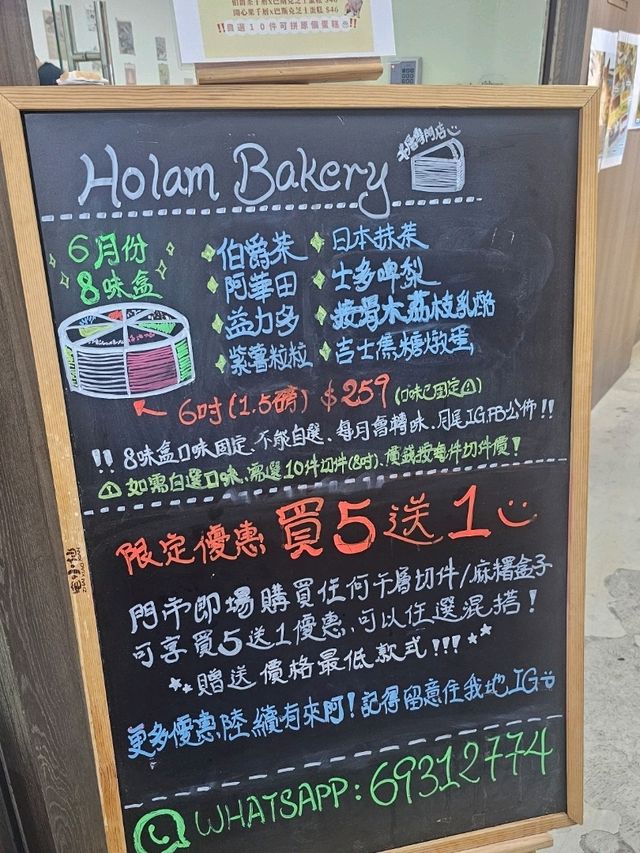 開心果千層x巴斯克芝士蛋糕 $46
!!自選10件可拼原個蛋糕!!
Holam Bakery
千層專門店
6月份
8味盒
伯爵茶
日本抹茶
阿華田
士多啤梨
益力多
荔枝乳酪
紫薯粒粒
吉士焦糖燉蛋
6吋(1.5磅) $259 (口味已固定⚠)
!! 8味盒口味固定、不能自選、每月會轉味、月尾IG,FB公佈!!
⚠如需自選口味、需選10件切件(8吋)、價錢按每件切件價!
限定優惠 買5送1
門市即場購買任何千層切件/麻糬盒子
可享買5送1優惠、可以任選混搭!
贈送價格最低款式!!!
更多優惠陸續有來阿!記得留意住我地IG
WHATSAPP:69312774